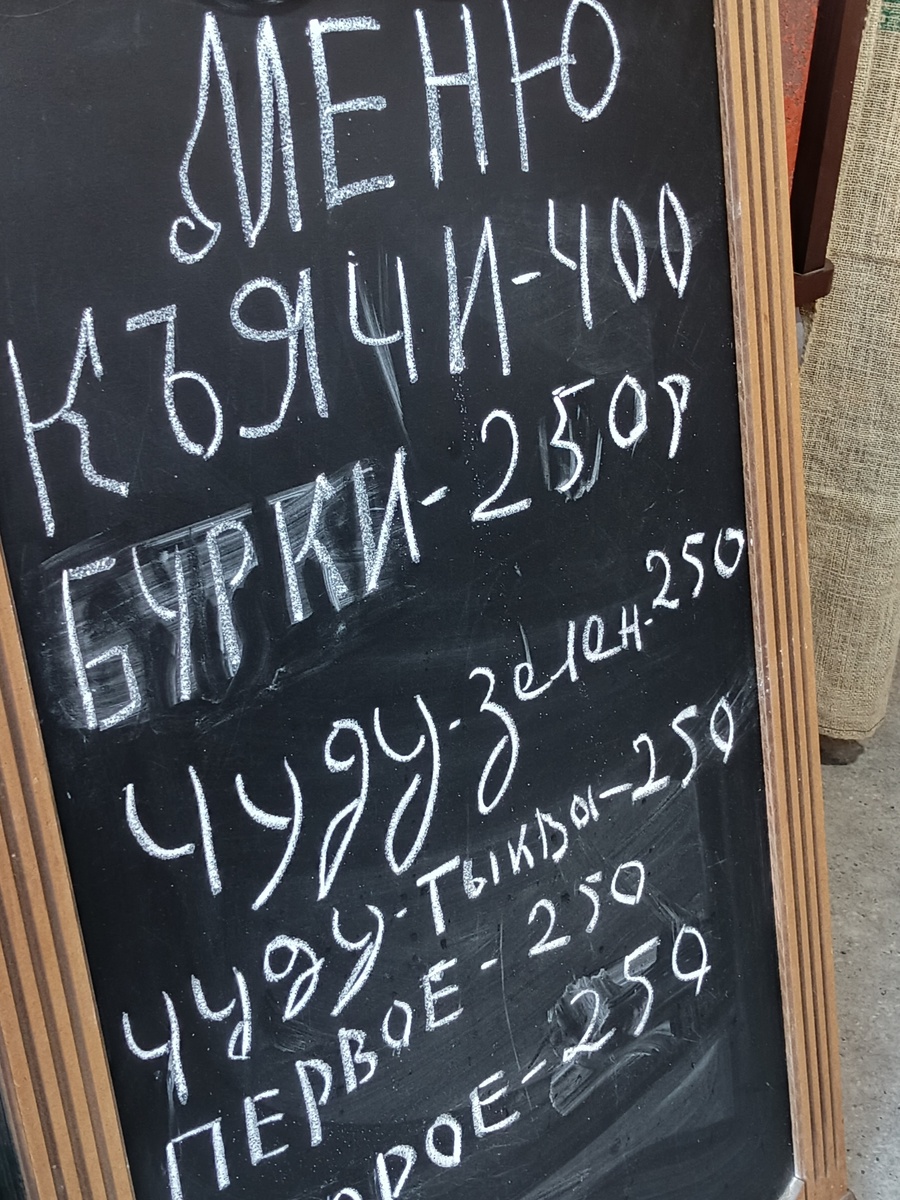 МЕНЮ
КЪЯЧИ-400
БУРКИ-250р
ЧУДУ-зелен-250
ЧУДУ-Тыква-250
ПЕРВОЕ-250
ОРОЕ-250